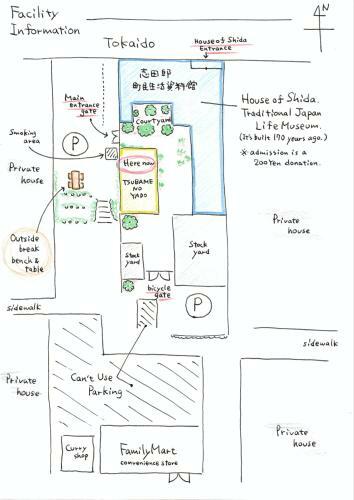 Facility
Information
Tokaido
House of Shida
Entrance
N
志田邸
町民生活資料館
Main
entrance
gate
Courtyard
House of Shida.
Traditional Japan
Life Museum.
(It's built 170 years ago.)
※ admission is a
200 Yen donation.
Smoking
area
P
Here now
TSUBAME
NO
YADO
Private
house
Outside
break
bench &
table
Private
house
Stock
yard
Stock
yard
bicycle
gate
P
sidewalk
sidewalk
Private
house
Can't Use
Parking
Private
house
Curry
shop
FamilyMart
convenience store